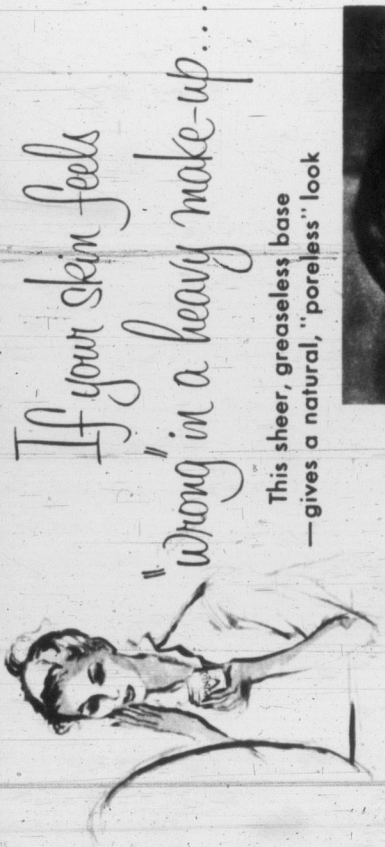 If your skin feels
"wrong" in a heavy make-up...
This sheer, greaseless base
—gives a natural, "poreless" look